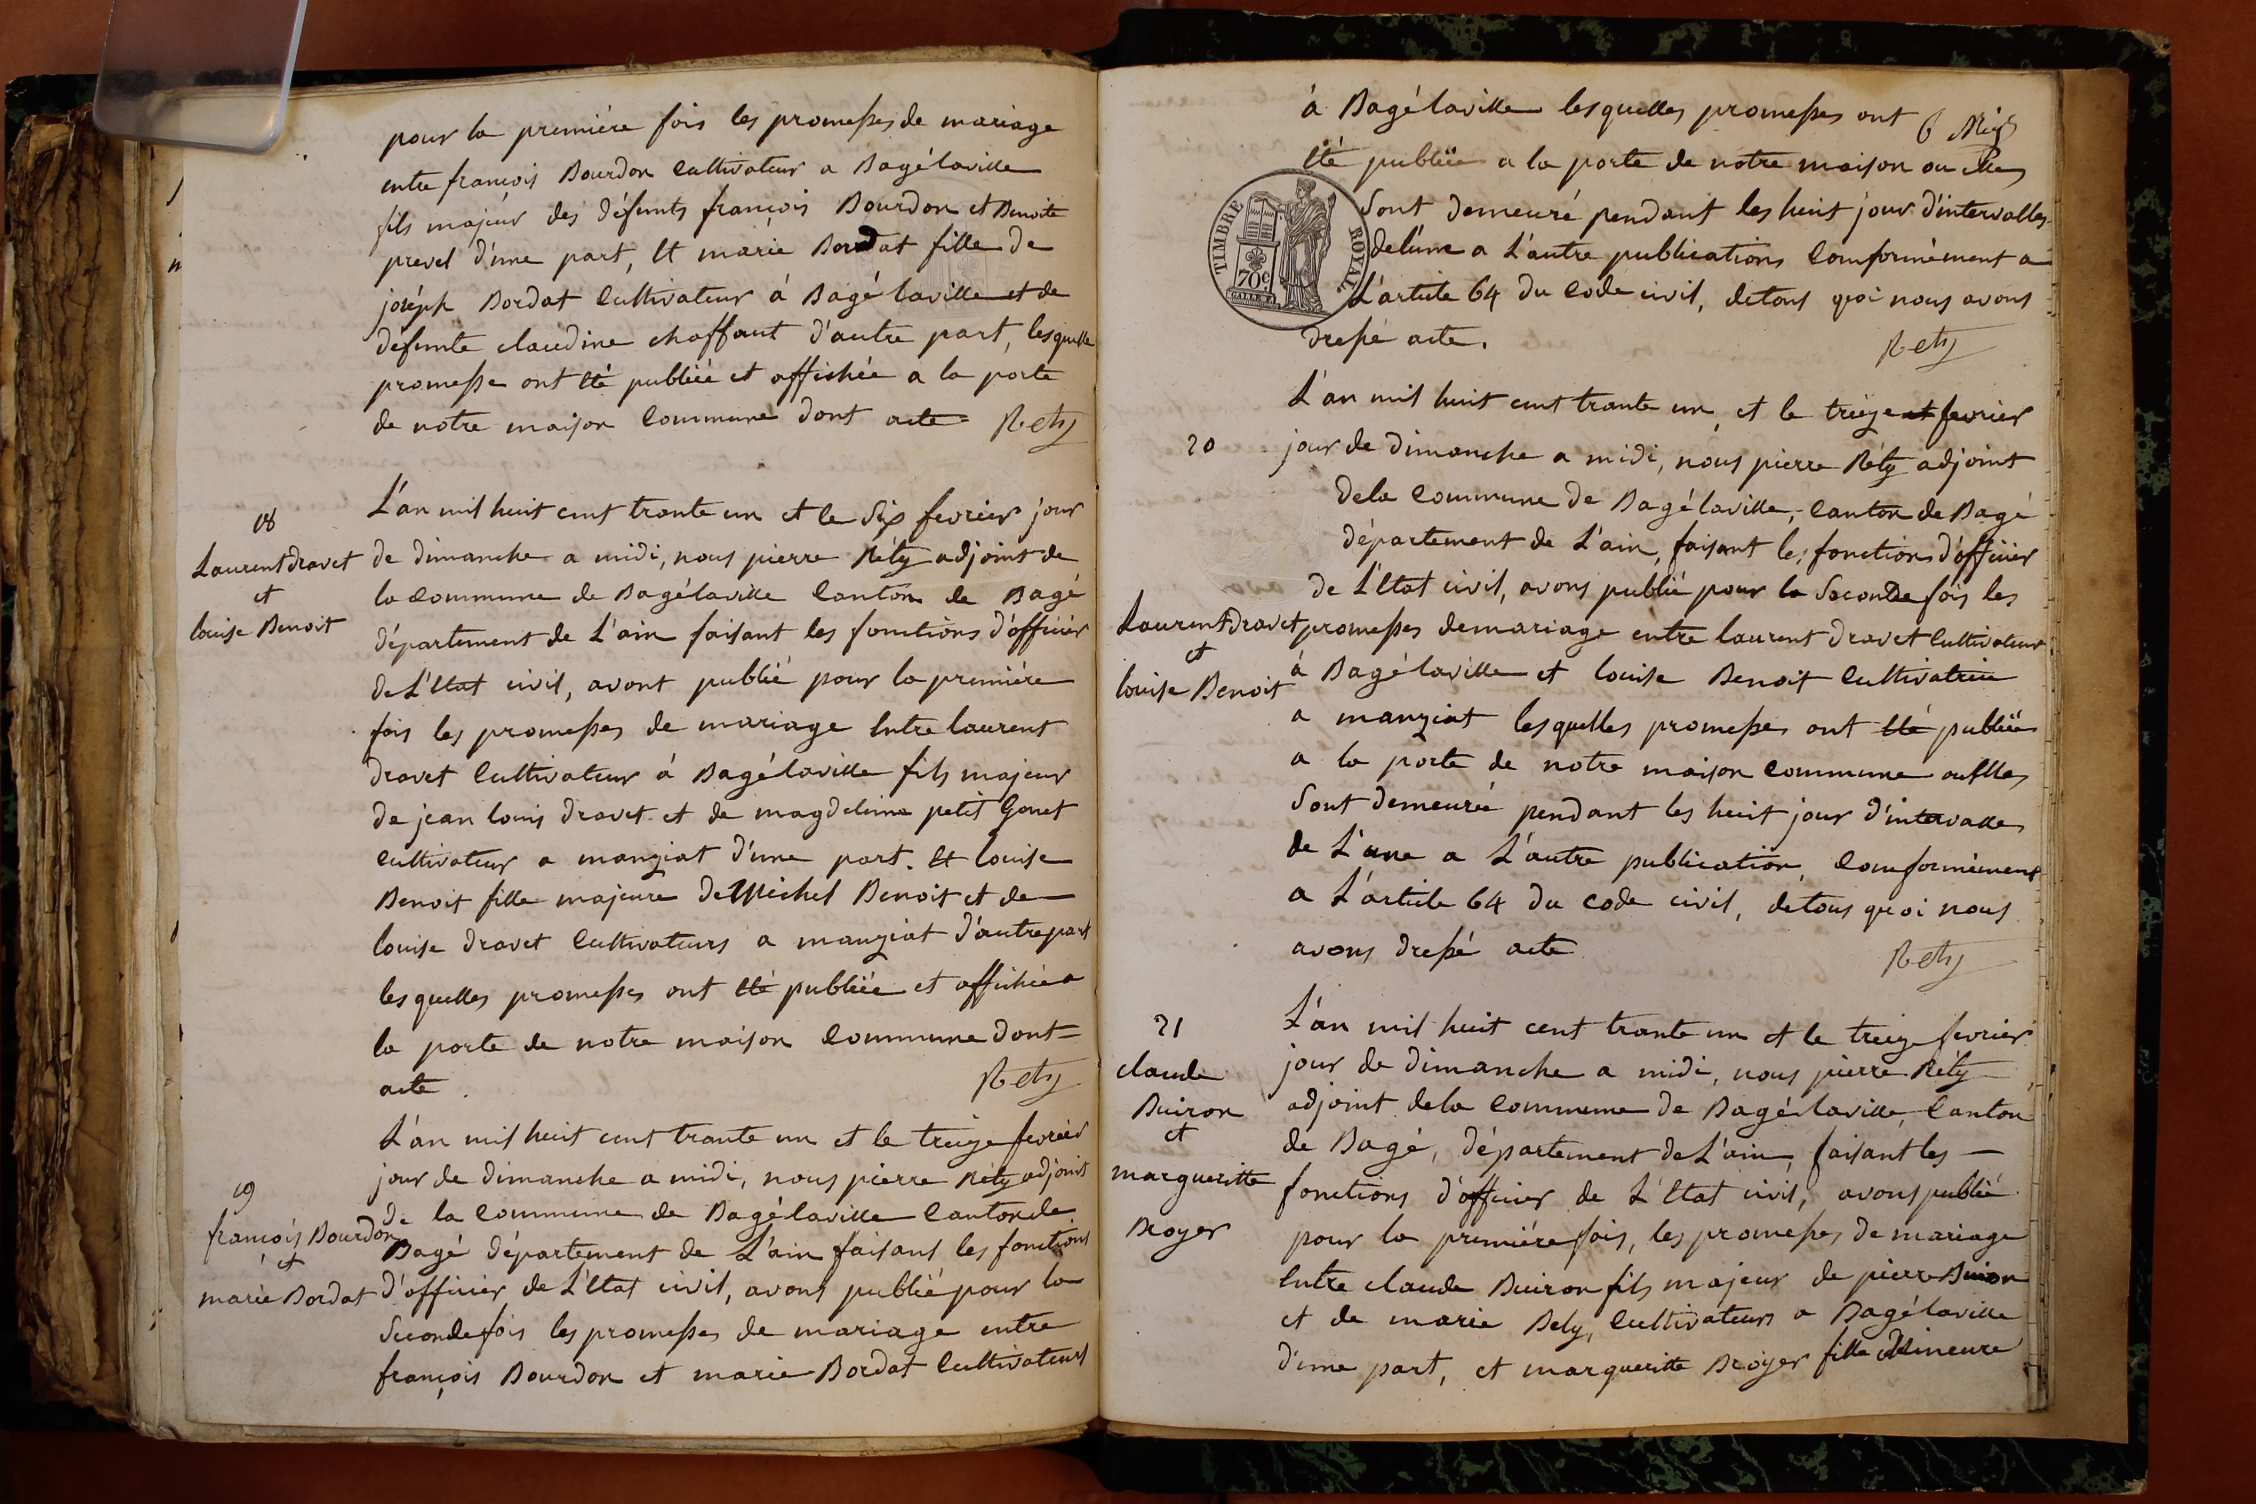 pour la première fois les promesses de mariage
entre françois Bourdon Cultivateur a Bagélaville
fils majeur des défunts françois Bourdon et Benoite
prevel d'une part, Et marie Bordat fille de
joséph Bordat Cultivateur á Bagélaville et de
defunte claudine chaffaut d'autre part, lesquelle
promesse ont Eté publiée et affichée a la porte
de notre maison Commune dont acte Rety
18
Laurent dravet
et
louise Benoit
L'an mil huit cent trante un et le Six fevrier jour
de dimanche a midi, nous pierre Réty adjoint de
la Commune de Bagélaville Canton de Bagé
département de L'ain faisant les fonctions d'officier
de L'Etat civil, avont publié pour la première
fois les promesses de mariage Entre laurent
dravet Cultivateur á Bagélaville fils majeur
de jean louis dravet et de magdeleine petit Gonet
cultivateur a manziat d'une part. Et louise
Benoit fille majeure de Michel Benoit et de
louise dravet Cultivateurs a manziat d'autre part
les quelles promesses ont Eté publiée et affichée a
la porte de notre maison Commune dont =
acte. Rety
19
françois Bourdon
et
marie Bordat
L'an mil huit cent trante un et le treize fevrier
jour de dimanche a midi, nous pierre Réty adjoint
de la Commune de Bagélaville Canton de
Bagé département de L'ain faisant les fonctions
d'officier de L'Etat civil, avons publié pour la
Seconde fois les promesses de mariage entre
françois Bourdon et marie Bordat Cultivateurs
á Bagélaville lesquelles promesses ont
Eté publiée a la porte de notre maison ou Elles
Sont demeuré pendant les huit jour d'intervalles
de l'une a L'autre publications Comformément a
L'article 64 du Code civil, de tous quoi nous avons
dressé acte.
Rety
TIMBRE ROYAL
70c
20
Laurent dravet
et
louise Benoit
L'an mil huit cent trante un, et le treize et fevrier
jour de dimanche a midi, nous pierre Réty adjoint
de la Commune de Bagélaville, Canton de Bagé
département de L'ain, faisant les fonctions d'officier
de L'Etat civil, avons publié pour la Seconde fois les
promesses de mariage entre laurent dravet Cultivateur
á Bagélaville et louise Benoit Cultivatrice
a manziat lesquelles promesses ont Eté publiée
a la porte de notre maison Commune ou Elles
Sont demeurée pendant les huit jour d'intervalles
de L'une a L'autre publication, Comformément
a L'article 64 du code civil, de tous quoi nous
avons dressé acte
Rety
21
claude
Buiron
et
margueritte
Broyer
L'an mil huit cent trante un et le treize fevrier
jour de dimanche a midi, nous pierre Réty
adjoint de la Commune de Bagélaville, Canton
de Bagé, département de L'ain, faisant les —
fonctions d'officier de L'Etat civil, avons publié
pour la première fois, les promesses de mariage
Entre claude Buiron fils majeur de pierre Buiron
et de marie Bely, Cultivateurs a Bagélaville
d'une part, et margueritte Broyer fille Mineure